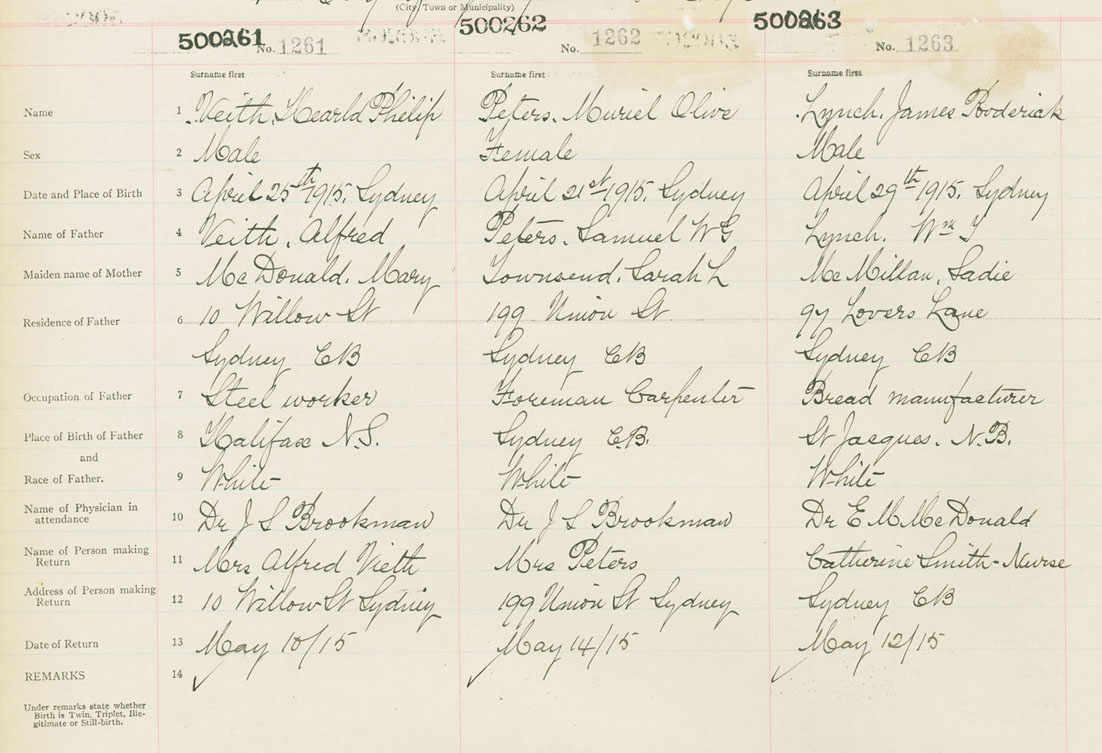 (City, Town or Municipality)
500261 No. 1261 500262 No. 1262 500263 No. 1263
Surname first Surname first Surname first
Name 1 Veith, Hearld Philip Peters. Muriel Olive Lynch. James Roderick
Sex 2 Male Female Male
Date and Place of Birth 3 April 25th 1915. Sydney April 21st 1915. Sydney April 29th 1915. Sydney
Name of Father 4 Veith, Alfred Peters. Samuel W G Lynch. Wm J
Maiden name of Mother 5 McDonald. Mary Townsend. Sarah L McMillan. Sadie
Residence of Father 6 10 Willow St 199 Union St 97 Lovers Lane
Sydney CB Sydney CB Sydney CB
Occupation of Father 7 Steel worker Foreman Carpenter Bread manufacturer
Place of Birth of Father 8 Halifax N.S. Sydney C.B. St Jacques. N.B.
and
Race of Father. 9 White White White
Name of Physician in attendance 10 Dr J S Brookman Dr J S Brookman Dr E M McDonald
Name of Person making Return 11 Mrs Alfred Vieth Mrs Peters Catherine Smith - Nurse
Address of Person making Return 12 10 Willow St Sydney 199 Union St Sydney Sydney CB
Date of Return 13 May 10/15 May 14/15 May 12/15
REMARKS 14
Under remarks state whether
Birth is Twin, Triplet, Ille-
gitimate or Still-birth.